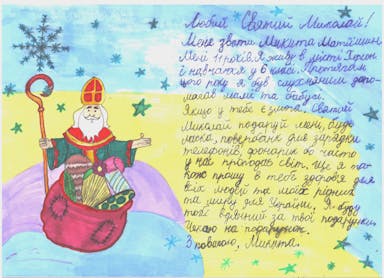 Любий Святий Миколай!
Мене звати Микита
Мені 11 років. Я живу в місті
і навчаюся у 6 класі. Протягом
цього року я був слухняним допо-
магав мамі та бабусі.
Якщо у тебе є змога Святий
Миколай подаруй мені, будь
ласка, повербанк для зарядки
телефонів, фонарик бо часто
у нас пропадає світ. Ще я та-
кож прошу в тебе здоров'я для
всіх людей та моїх рідних
та миру для України. Я буду
тобі вдячний за твої подарунки.
Чекаю на подарунок.
З повагою, Микита.